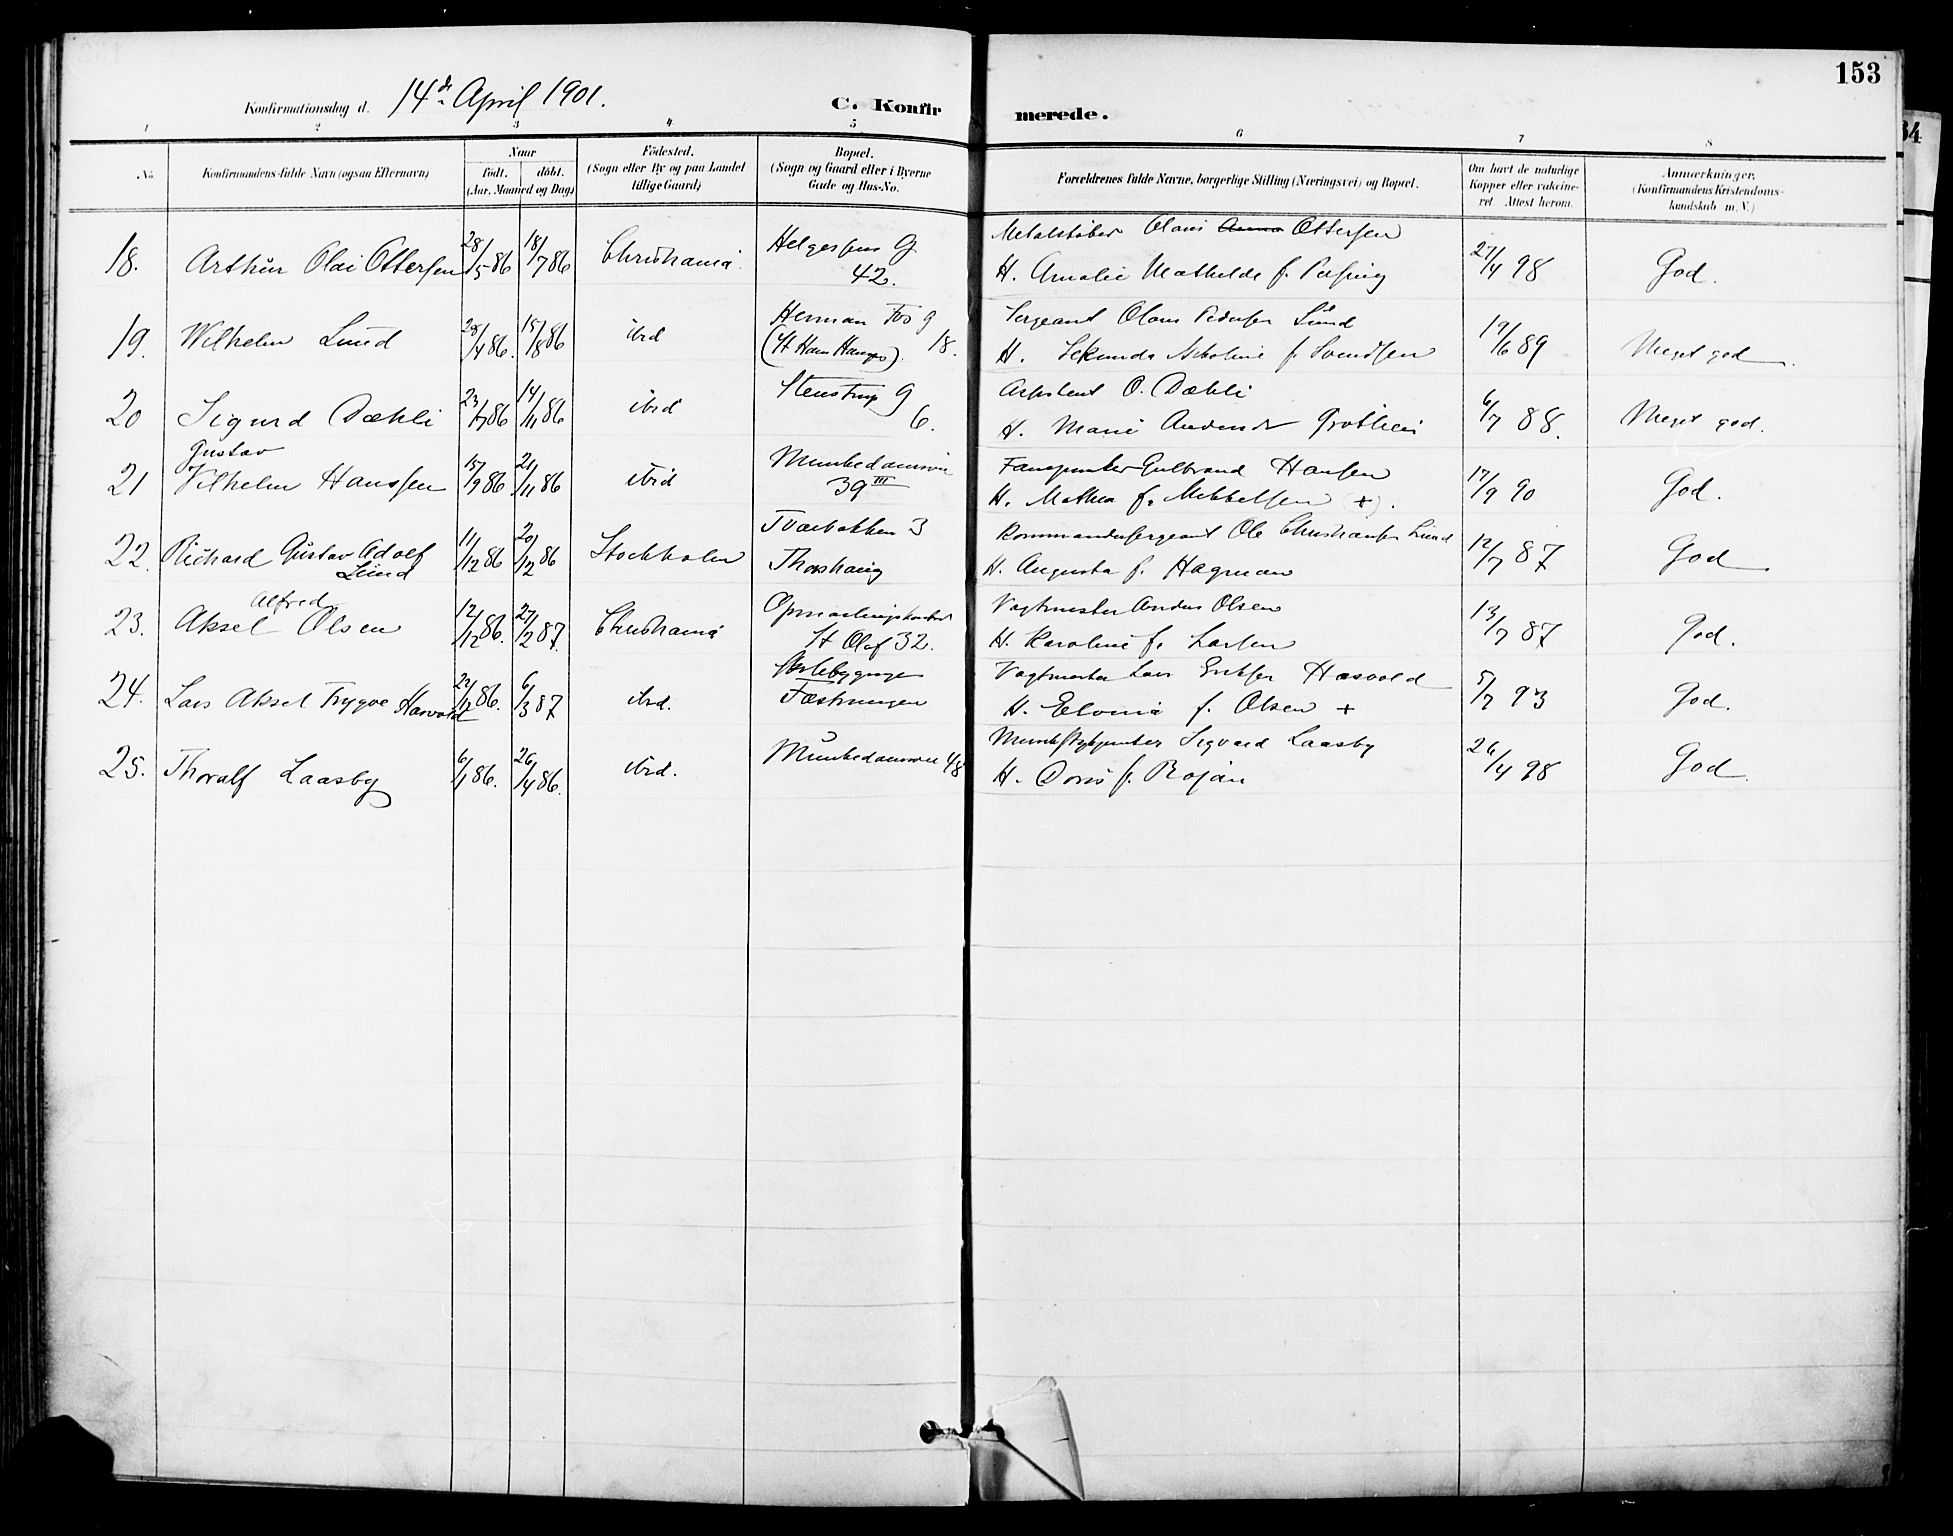 153
Konfirmationsdag d. 14de April 1901.
C. Konfirmerede.
1 2 3 4 5 6 7 8
No. Konfirmandens fulde Navn (ogsaa Efternavn)
Naar födt. döbt. (Aar, Maaned og Dag)
Födested. (Sogn eller By og paa Landet tillige Gaard)
Bopæl. (Sogn og Gaard eller i Byerne Gade og Hus-No.
Forældrenes fulde Navne, borgerlige Stilling (Næringsvei) og Bopæl.
Om havt de naturlige Kopper eller vakcineret. Attest herom.
Anmærkninger, (Konfirmandens Kristendomskundskab m. V.)
18. Arthur Olai Ottersen 28/5 86 18/7 86 Christiania Helgesens G. 42.
Metalstøber Olaus Anna Ottersen
H. Amalie Mathilde f. 27/4 98 God.
19. Wilhelm Lund 28/4 86. 15/8 86 ibid Herman Fos g 18. (St Hans Haugen).
Sergeant Olaus Pedersen Lund
H. Sekunda f. Svendsen 19/6 89 Meget god.
20 Sigurd Dæhli 23/7 86 14/11 86 ibid Stenstrup g 6.
Assistent O. Dæhli
H. Marie 6/7 88. Meget god.
21 Gustav Vilhelm Hanssen 15/9 86 21/11 86 ibid Munkedamsvn 39 III
Fanejunker Gulbrand Hansen
H. Mathea f. Mikkelsen (+). 17/9 90 God.
22. Richard Gustav Adolf Lund 11/12 86 20/12 86 Stockholm Tværbakken 3 Thorshaug
Kommandersergeant Ole Christiansen Lund
H. Augusta f. Hagman 12/7 87 God
23. Aksel Alfred Olsen 12/12 86. 27/2 87. Christiania Opmaalingskontoret St Olaf 32.
Vagtmester Anders Olsen
H. Karoline f. Larsen 13/7 87 God.
24. Lars Aksel Trygve Hasvold 22/12 86. 6/3 87 ibid. Fæstningen
Vagtmester Lars Eriksen Hasvold
H. Elvina f. Olsen + 5/7 93 God.
25. Thoralf Laasby 6/1 86. 26/4 86. ibid. Munkedamsvn 48
Sigvard Laasby
H. Doris f. Rojan 26/4 98 God.